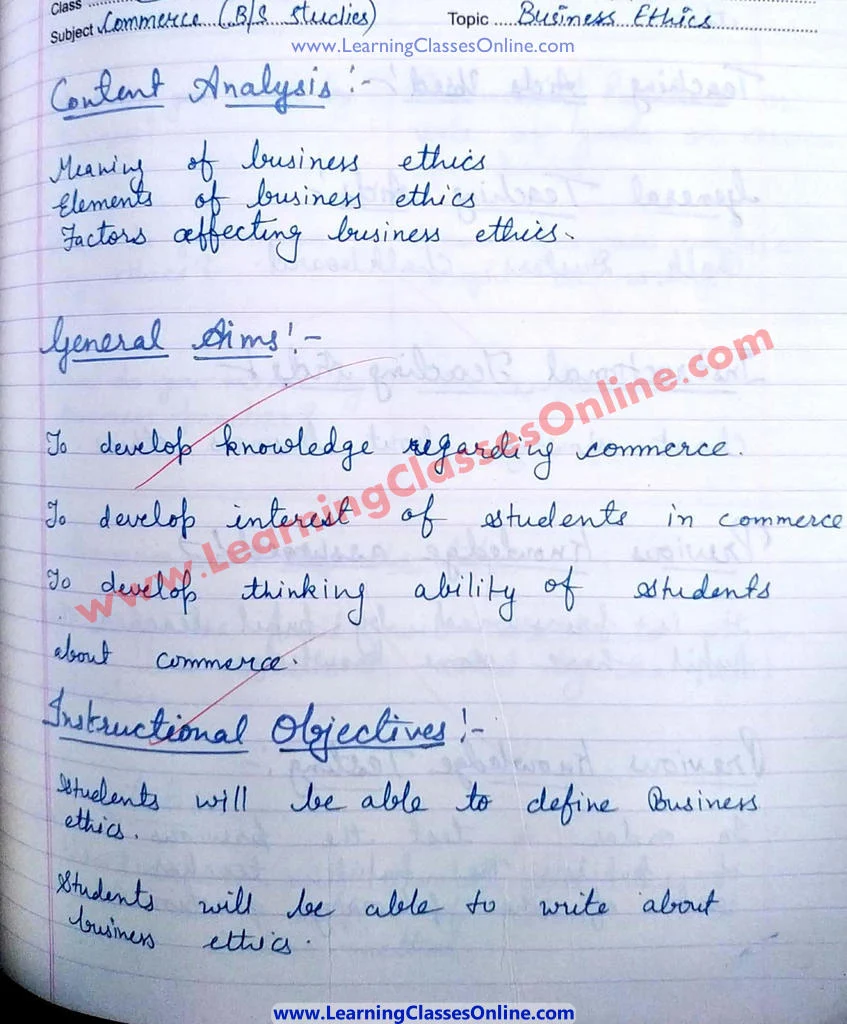 Class
Subject Commerce (B/S studies) Topic Business Ethics
www.LearningClassesOnline.com
Content Analysis :-
Meaning of business ethics
Elements of business ethics
Factors affecting business ethics.
General Aims :-
To develop knowledge regarding commerce.
To develop interest of students in commerce
To develop thinking ability of students
about commerce.
www.LearningClassesOnline.com
Instructional Objectives :-
Students will be able to define Business
ethics.
Students will be able to write about
business ethics.
www.LearningClassesOnline.com